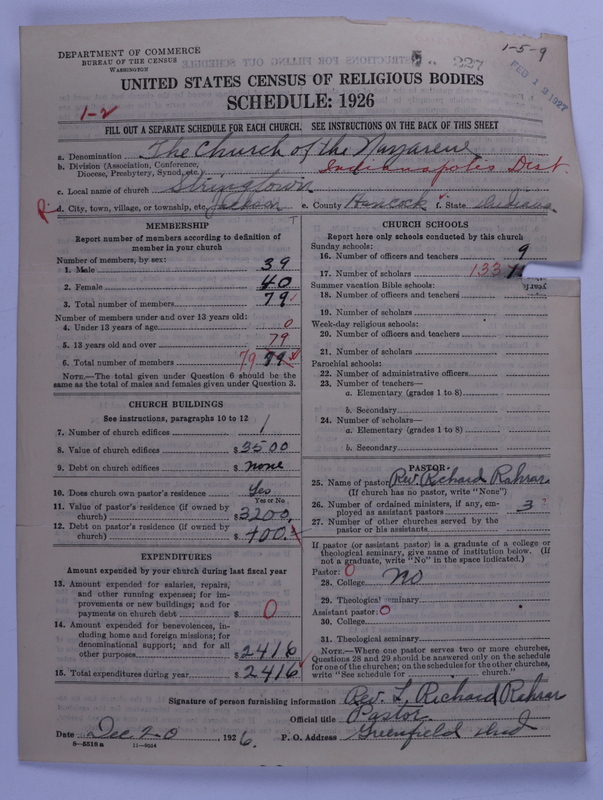 1-5-9
DEPARTMENT OF COMMERCE
BUREAU OF THE CENSUS
WASHINGTON
227
FEB 1 2 1927
UNITED STATES CENSUS OF RELIGIOUS BODIES
SCHEDULE: 1926
1-2
FILL OUT A SEPARATE SCHEDULE FOR EACH CHURCH. SEE INSTRUCTIONS ON THE BACK OF THIS SHEET
a. Denomination The Church of the Nazarene
b. Division (Association, Conference, Diocese, Presbytery, Synod, etc.) Indianapolis Dist.
c. Local name of church Stringtown
d. City, town, village, or township, etc. Jackson e. County Hancock f. State Indiana
MEMBERSHIP
Report number of members according to definition of
member in your church
Number of members, by sex:
1. Male 39
2. Female 40
3. Total number of members 79
Number of members under and over 13 years old:
4. Under 13 years of age 0
5. 13 years old and over 79
6. Total number of members 79 79
NOTE.—The total given under Question 6 should be the
same as the total of males and females given under Question 3.
CHURCH BUILDINGS
See instructions, paragraphs 10 to 12
7. Number of church edifices 1
8. Value of church edifices $3500
9. Debt on church edifices $ none
10. Does church own pastor's residence Yes
Yes or No
11. Value of pastor's residence (if owned by
church) $3200.
12. Debt on pastor's residence (if owned by
church) $ 400.
EXPENDITURES
Amount expended by your church during last fiscal year
13. Amount expended for salaries, repairs,
and other running expenses; for im-
provements or new buildings; and for
payments on church debt $ 0
14. Amount expended for benevolences, in-
cluding home and foreign missions; for
denominational support; and for all
other purposes $2416
15. Total expenditures during year $2416
CHURCH SCHOOLS
Report here only schools conducted by this church
Sunday schools:
16. Number of officers and teachers 9
17. Number of scholars 133
Summer vacation Bible schools:
18. Number of officers and teachers
19. Number of scholars
Week-day religious schools:
20. Number of officers and teachers
21. Number of scholars
Parochial schools:
22. Number of administrative officers
23. Number of teachers—
a. Elementary (grades 1 to 8)
b. Secondary
24. Number of scholars—
a. Elementary (grades 1 to 8)
b. Secondary
PASTOR
25. Name of pastor Rev. Richard Rahrar
(If church has no pastor, write "None")
26. Number of ordained ministers, if any, em-
ployed as assistant pastors 3
27. Number of other churches served by the
pastor or his assistants
If pastor (or assistant pastor) is a graduate of a college or
theological seminary, give name of institution below. (If
not a graduate, write "No" in the space indicated.)
Pastor: 0
28. College No
29. Theological seminary
Assistant pastor: 0
30. College
31. Theological seminary
NOTE.—Where one pastor serves two or more churches,
Questions 28 and 29 should be answered only on the schedule
for one of the churches; on the schedules for the other churches,
write "See schedule for church."
Signature of person furnishing information Rev. L. Richard Rahrar
Official title Pastor
Date Dec 20, 1926. P. O. Address Greenfield Ind
8-5518 a 11-9054